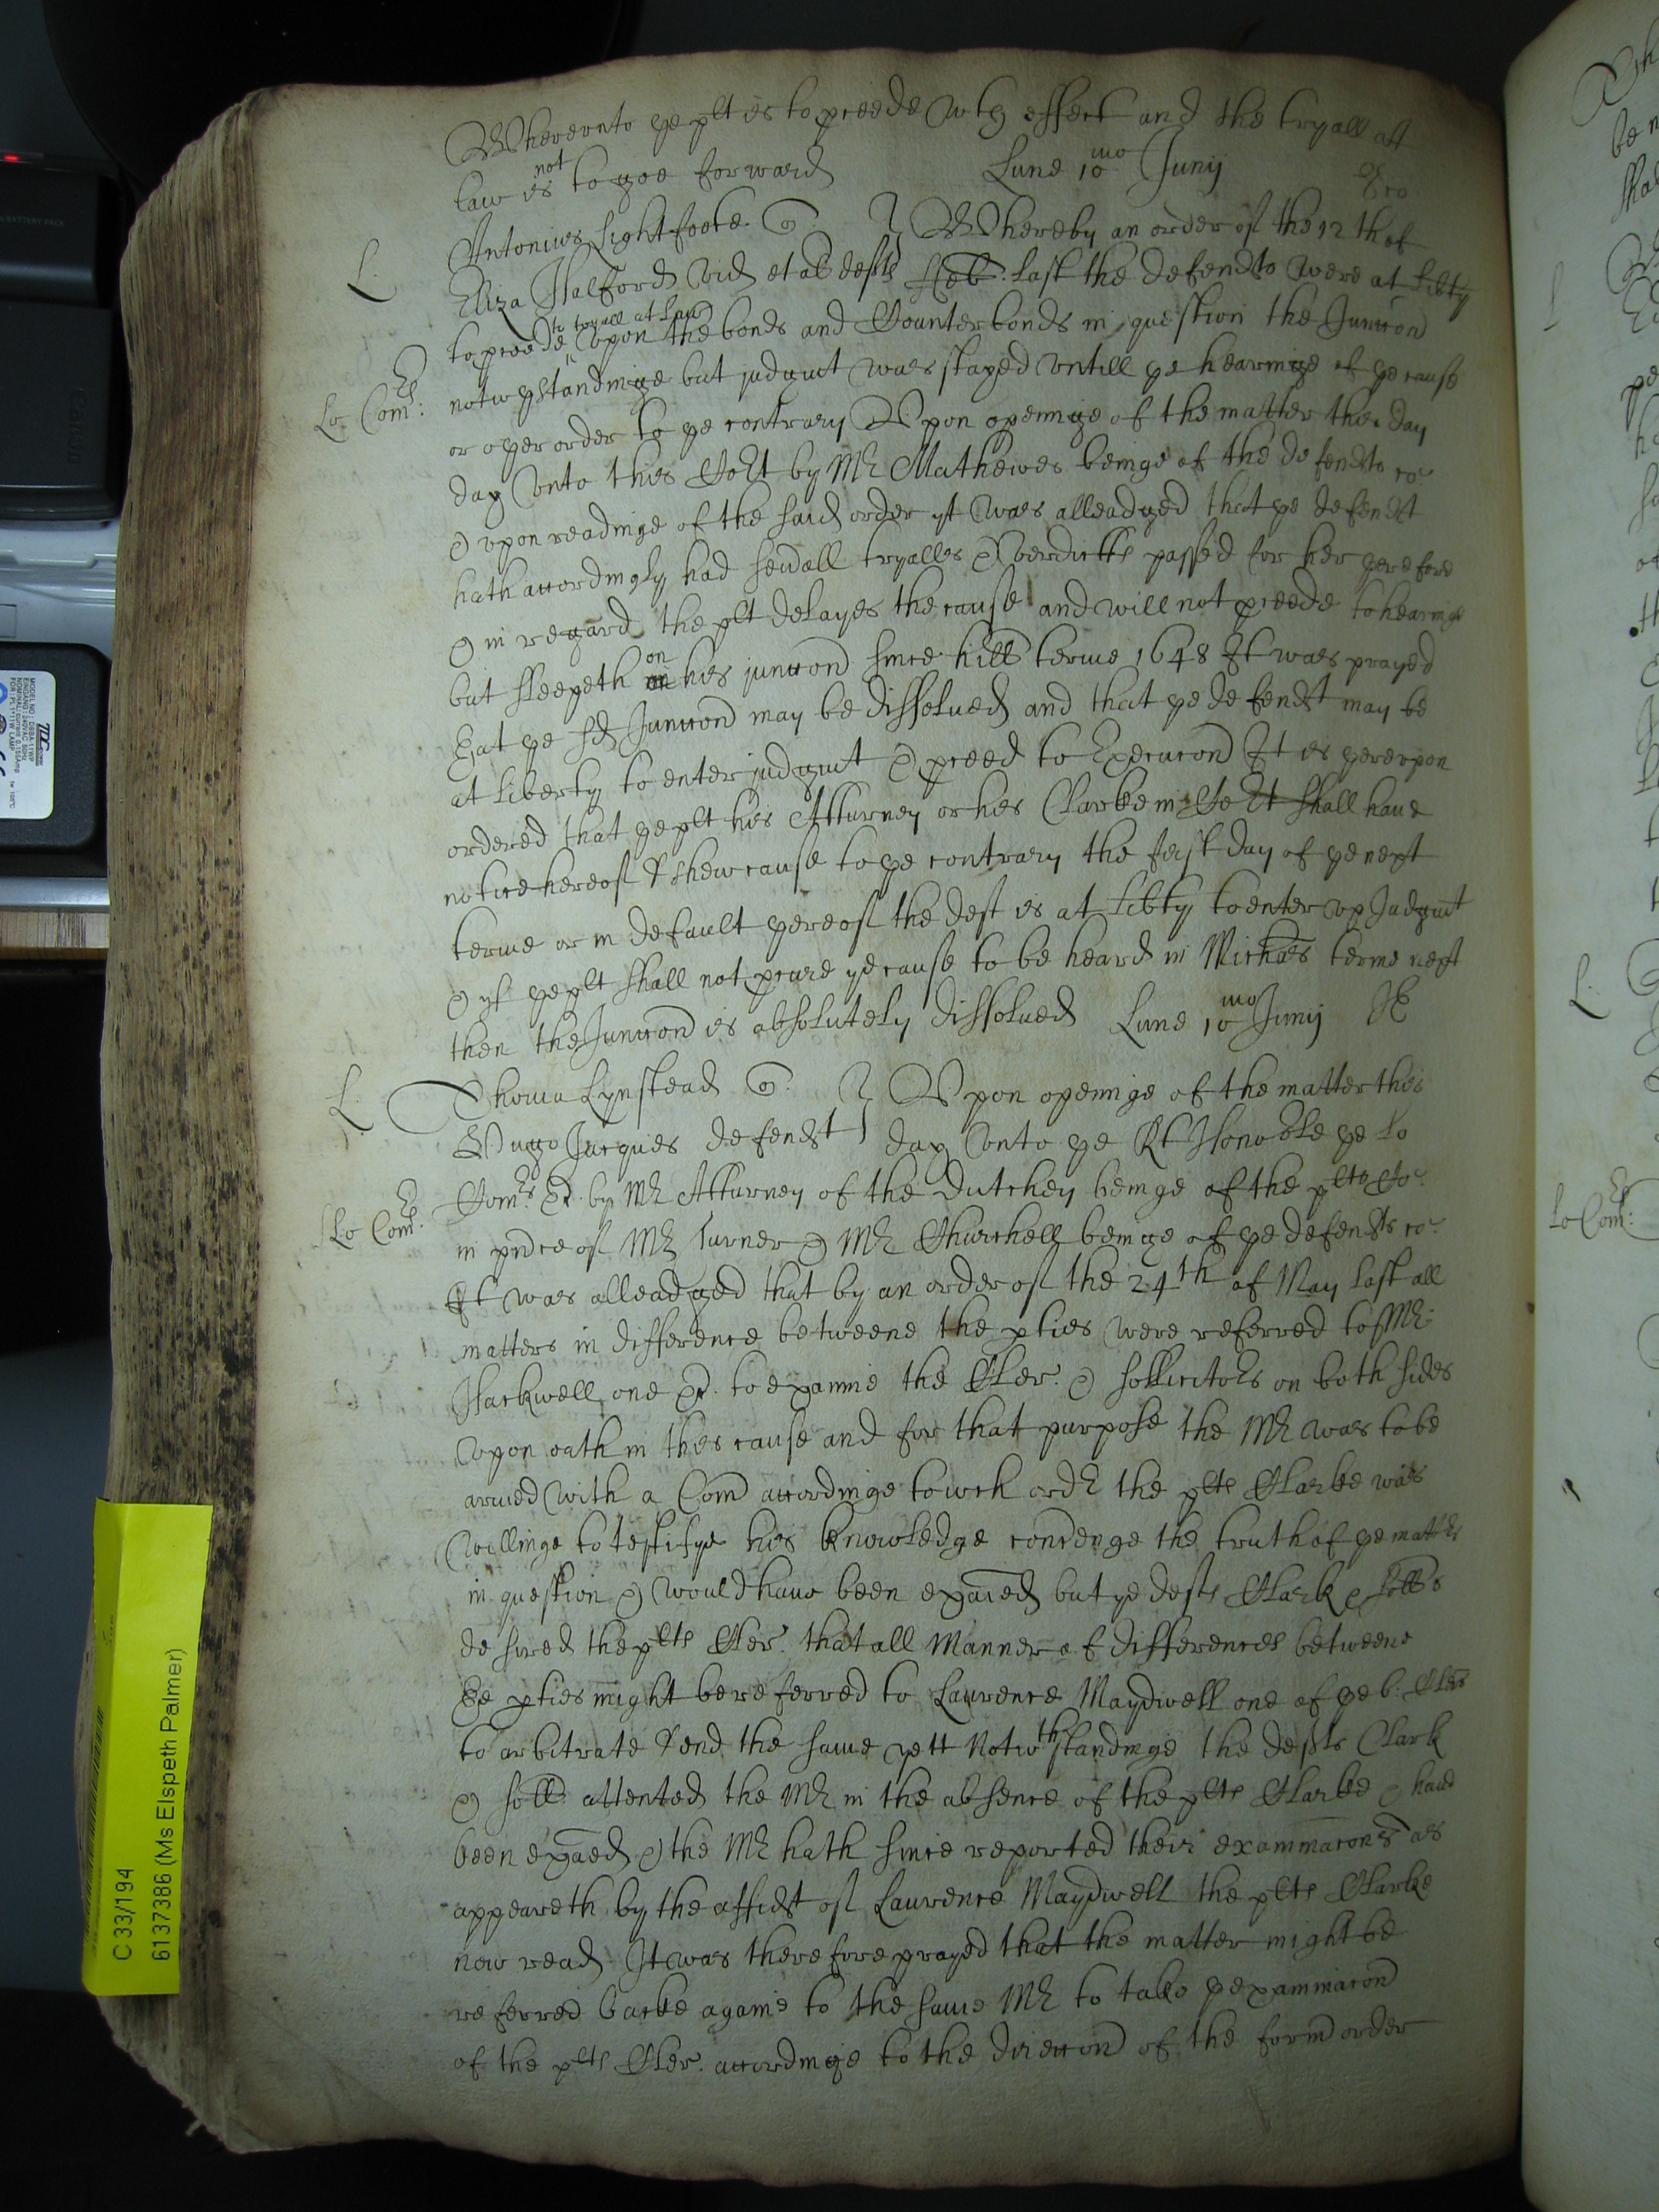 Whereunto ye plt is to pceede wth effect and the tryall att
law is not to goe forward Lune 10mo Junij
L. Antonius Lightfoote Q. Whereby an order of the 12th of
Eliza Halford vid et al defts Feb: last the defendts were at libty
to pceede to tryall at Law upon the bonds and Counterbonds in question the Junccon
Lo: Comrs: notwthstandinge but judgmt was stayed untill ye hearinge of ye cause
or other order to ye contrary Upon openinge of the matter the day
day unto this Cort by Mr Mathewes beinge of the defendts co
& upon readinge of the said order yt was alleadged that ye defendt
hath accordingly had sevall tryalls & verdicts passed for her therefore
& in regard the plt delayes the cause and will not pceede to hearinge
but sleepeth on his junccon since Hill terme 1648 It was prayed
that ye sd Junccon may be dissolved and that ye defendt may be
at liberty to enter judgmt & pceed to Execucon It is thereupon
ordered that ye plt his Atturney or his Clarke in Cort shall have
notice hereof & shew cause to ye contrary the first day of ye next
terme or in default thereof the deft is at libty to enter up Judgmt
& yf ye plt shall not pcure ye cause to be heard in Michas terme next
then the Junccon is absolutely dissolved Lune 10mo Junij
L. Thoma Lynstead Q. Upon openinge of the matter this
Hugo Jacques defendt day unto ye Rt Honoble ye Lo
Lo Comrs. Comrs &c. by Mr Atturney of the Dutchey beinge of the plts Co
in pnce of Mr Turner & Mr Churchell beinge of ye defendts co
It was alleadged that by an order of the 24th of May last all
matters in difference betweene the pties were referred to Mr
Hackwell one &c. to examine the Cler. & sollicitors on both sides
upon oath in this cause and for that purpose the Mr was to be
armed with a Com accordinge to wch ordr the plts Clarke was
willinge to testifye his knowledge concnge the truth of ye mattrs
in question & would have been exaied but ye defts Clark & sollr
desired the plts Cler. that all Manner of differences betweene
the pties might be referred to Laurence Maydwell one of ye 6. Clers
to arbitrate & end the same yett Notwthstandinge the defts Clark
& soll attented the Mr in the absence of the plts Clarke & have
been exaed & the Mr hath since reported their examinacons as
appeareth by the affidt of Laurence Maydwell the plts Clarke
now read It was therefore prayed that the matter might be
referred backe againe to the same Mr to take ye examinacon
of the plts Cler. accordinge to the direccon of the form order
Lo Comrs:
C 33/194
6137386 (Ms Elspeth Palmer)